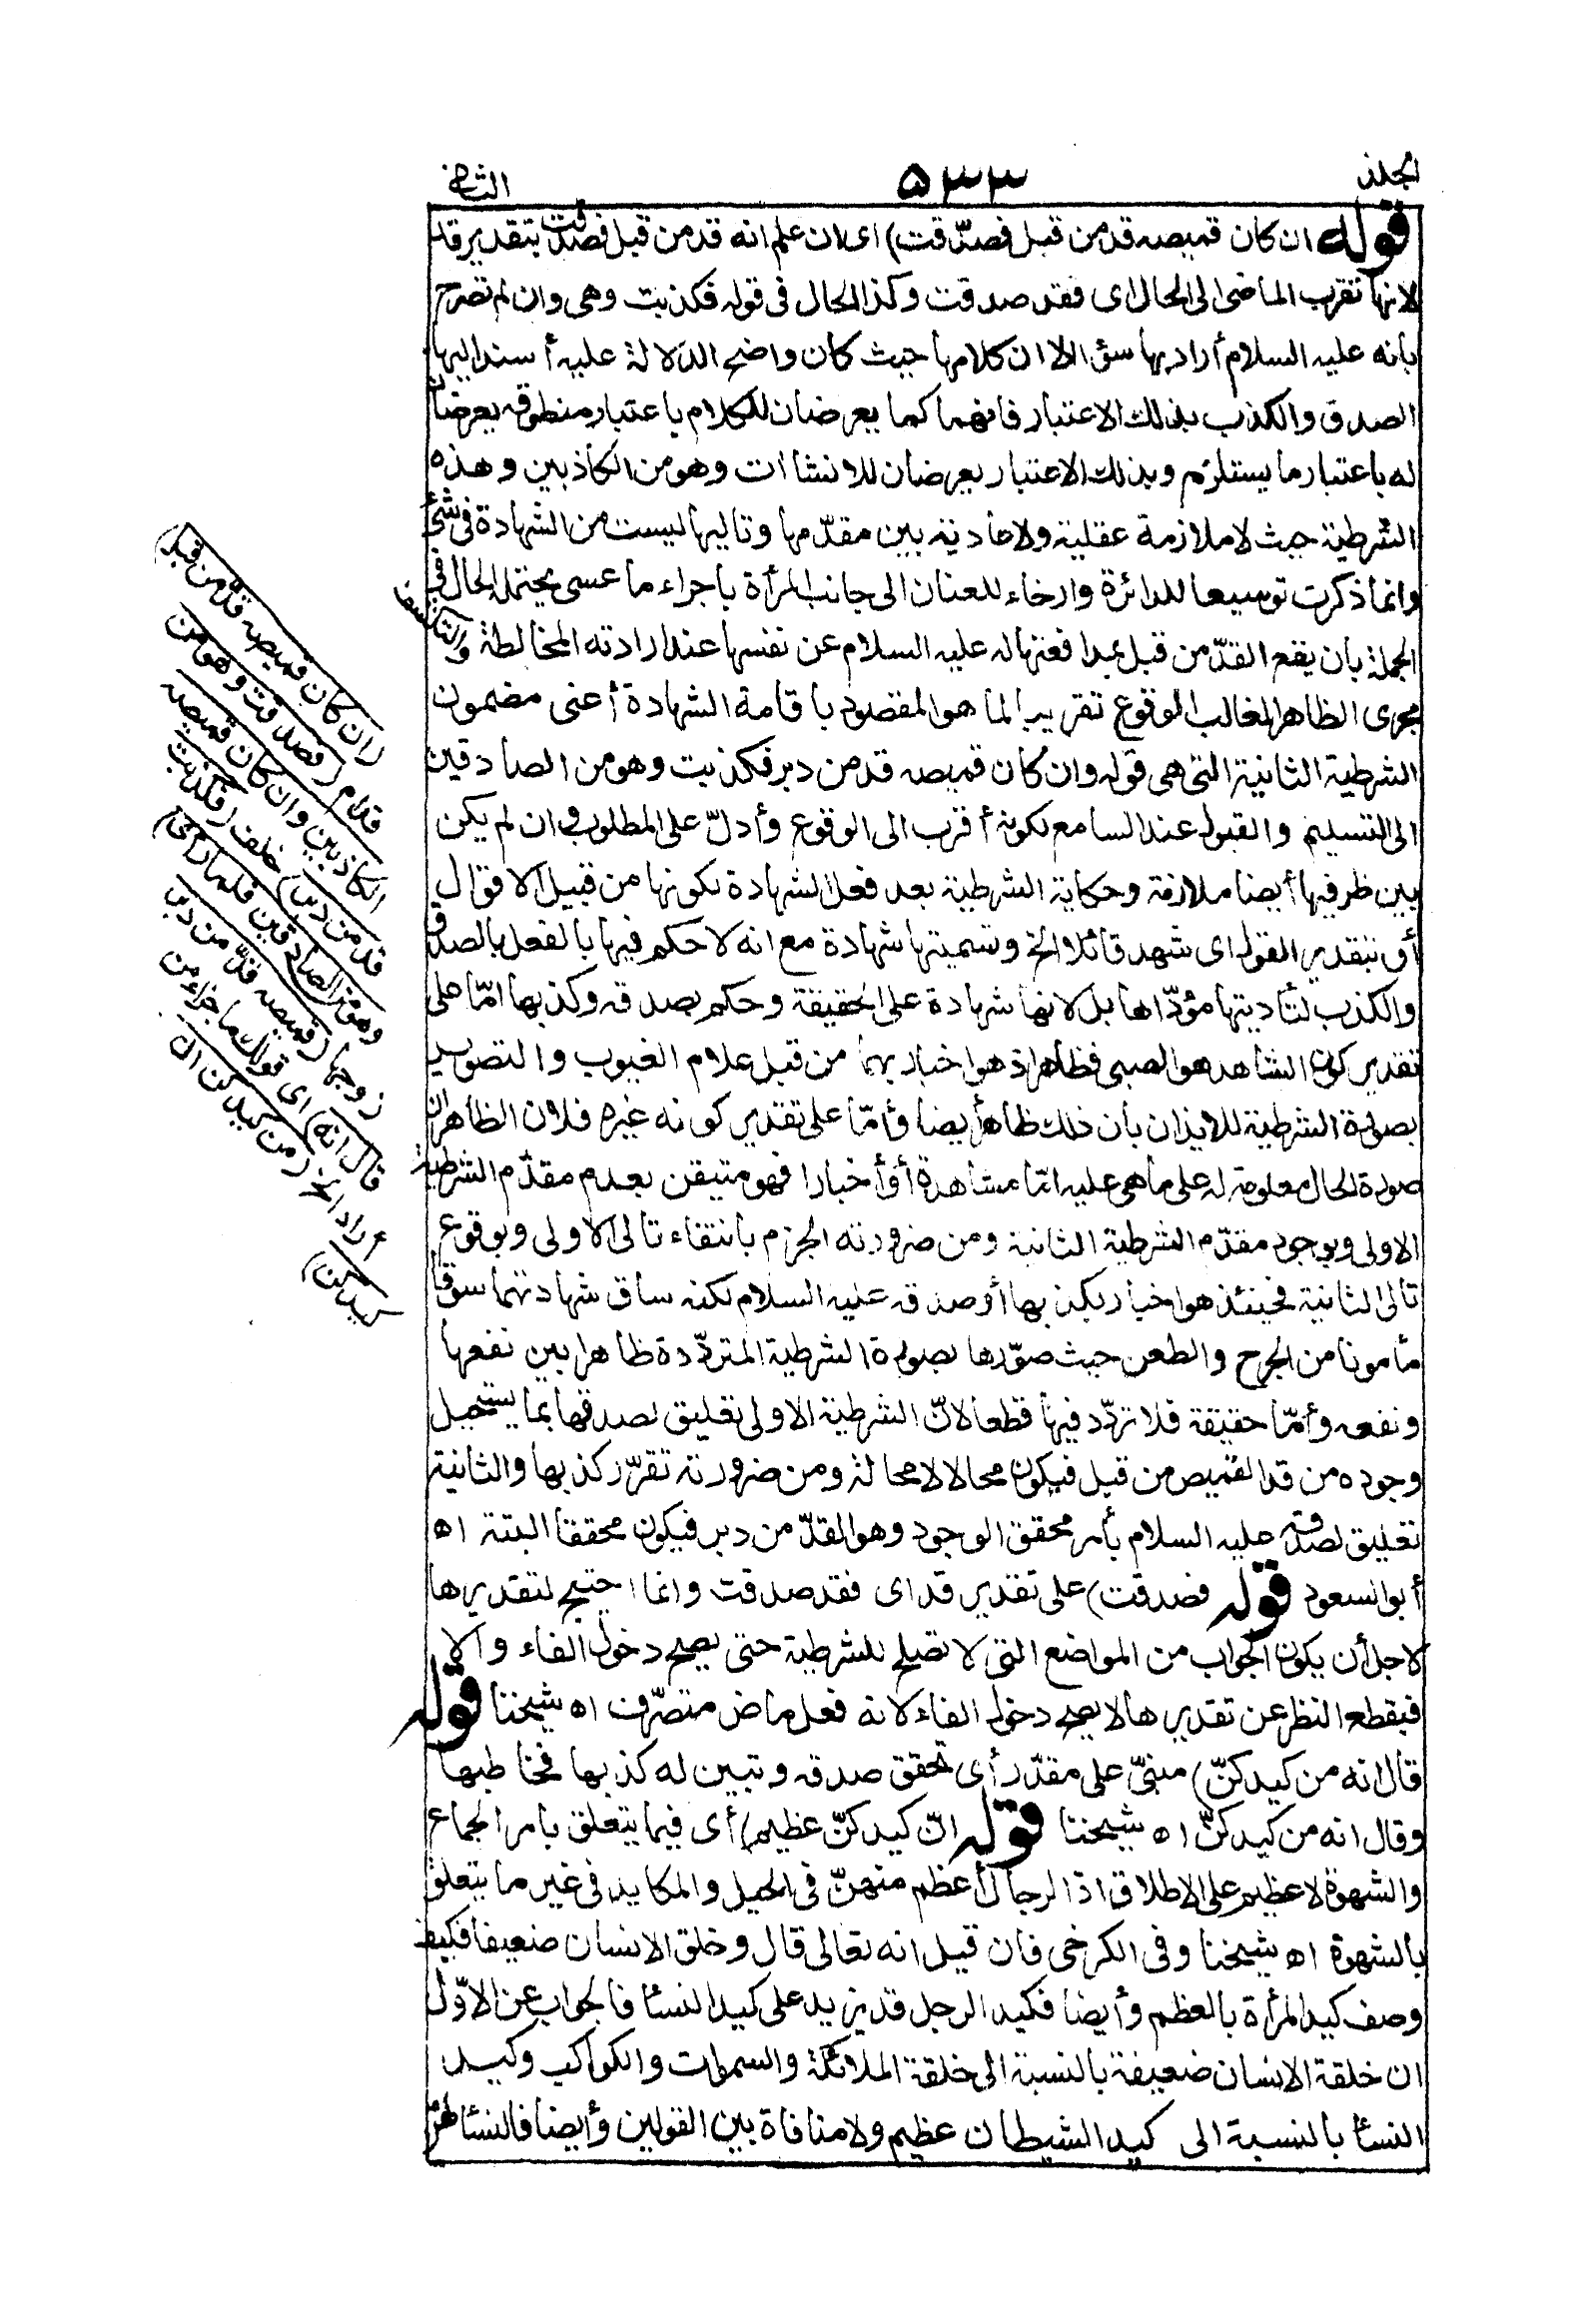 المجلد
٥٣٣
الثانى
قوله ان كان قميصه قد من قبل فصدّقت) اى ان علم انه قد من قبل فصدقت بتقدير قد
لانها تقرب الماضى الى الحال اى فقد صدقت وكذا الحال فى قوله فكذبت وهى وان لم تصرح
بأنه عليه السلام أراد بها سوأ الا ان كلامها حيث كان واضح الدلالة عليه أسند اليها
الصدق والكذب بذلك الاعتبار فانهما كما يعرضان للكلام باعتبار منطوقه يعرضان
له باعتبار ما يستلزم وبذلك الاعتبار يعرضان للانشاات وهو من الكاذبين وهذه
الشرطية حيث لا ملازمة عقلية ولا عادية بين مقدّمها وتاليها ليست من الشهادة فى شئ
وانما ذكرت توسيعا للدائرة وارخاء للعنان الى جانب المرأة باجراء ما عسى يحتمله الحال فى
الجملة بان يقع القدّ من قبل بمدافعتها له عليه السلام عن نفسها عند ارادته المخالطة والتكشف
مجرى الظاهر الغالب الوقوع تقريبا لما هو المقصود باقامة الشهادة أعنى مضمون
الشرطية الثانية التى هى قوله وان كان قميصه قد من دبر فكذبت وهو من الصادقين
الى التسليم والقبول عند السامع لكونه أقرب الى الوقوع وأدلّ على المطلوب وان لم يكن
بين طرفيها أيضا ملازمة وحكاية الشرطية بعد فعل الشهادة لكونها من قبيل الاقوال
أو بتقدير القول اى شهد قائلا الخ وتسميتها شهادة مع انه لا حكم فيها بالفعل بالصدق
والكذب لتأديتها مؤدّاها بل لانها شهادة على الحقيقة وحكم بصدقه وكذبها امّا على
تقدير كون الشاهد هو الصبى فظاهر اذ هو اخبار بهما من قبل علام الغيوب والتصوير
بصورة الشرطية للايذان بأن ذلك ظاهر أيضا وأمّا على تقدير كونه غيره فلان الظاهر ان
صورة الحال معلومة له على ما هى عليه امّا مشاهدة أو أخبارا فهو متيقن بعدم مقدّم الشرطية
الاولى وبوجود مقدّم الشرطية الثانية ومن ضرورته الجزم بانتفاء تالى الاولى وبوقوع
تالى الثانية فحينئذ هو اخبار بكذبها أو صدقه عليه السلام لكنه ساق شهادتهما سوقا
مأمونا من الجرح والطعن حيث صوّرها بصورة الشرطية المتردّدة ظاهرا بين نفعها
ونفعه وأمّا حقيقة فلا تردّد فيها قطعا لانّ الشرطية الاولى تعليق لصدقها بما يستحيل
وجوده من قد القميص من قبل فيكون محالا لا محالة ومن ضرورته تقرّر كذبها والثانية
تعليق لصدقه عليه السلام بأمر محقق الوجود وهو القدّ من دبر فيكون محققا البتة اه
أبو السعود قوله فصدقت) على تقدير قد اى فقد صدقت وانما احتيج لتقديرها
لاجل أن يكون الجواب من المواضع التى لا تصلح للشرطية حتى يصح دخول الفاء والا
فبقطع النظر عن تقديرها لا يصح دخول الفاء لانه فعل ماض متصرّف اه شيخنا قوله
قال انه من كيدكنّ) مبنىّ على مقدّر أى تحقق صدقه وتبين له كذبها فخاطبها
وقال انه من كيدكنّ اه شيخنا قوله انّ كيدكنّ عظيم) أى فيما يتعلق بامر الجماع
والشهوة لا عظيم على الاطلاق اذ الرجال أعظم منهنّ فى الحيل والمكايد فى غير ما يتعلق
بالشهوة اه شيخنا وفى الكرخى فان قيل انه تعالى قال وخلق الانسان ضعيفا فكيف
وصف كيد المرأة بالعظم وأيضا فكيد الرجل قد يزيد على كيد النسأ فالجواب عن الاوّل
ان خلقة الانسان ضعيفة بالنسبة الى خلقة الملائكة والسموات والكواكب وكيد
النسأ بالنسبة الى كيد الشيطان عظيم ولا منافاة بين القولين وأيضا فالنسأ لهنّ
(ان كان قميصه قدّ من قبل)
قدام (فصدقت وهو من
الكاذبين وان كان قميصه
قد من دبر) خلف (فكذبت
وهو من الصادقين فلما رأى)
زوجها (قميصه قدّ من دبر
قال انه) اى قولك ما جزاء من
أراد الخ (من كيدكن ان
كيدكن)